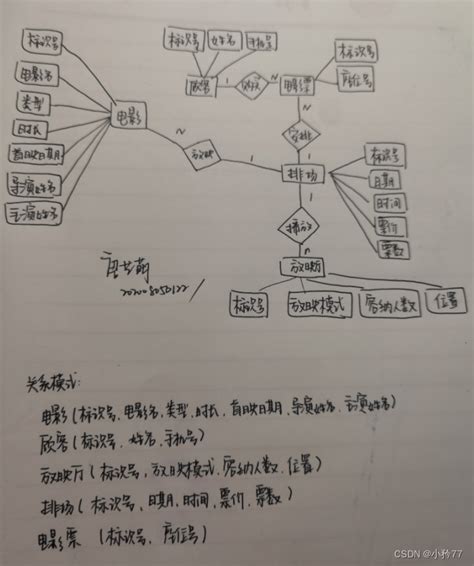 标识号 姓名 手机号
标识号
顾客 1 购买 N 电影票
标识号
座位号
电影名
类型
电影
时长
首映日期
导演姓名
主演姓名
N
安排
N 放映 1
1
排场
标识号
日期
时间
票价
票数
1
播放
n
放映厅
标识号 放映模式 容纳人数 位置
202008050122
关系模式:
电影(标识号、电影名、类型、时长、首映日期、导演姓名、主演姓名)
顾客(标识号、姓名、手机号)
放映厅(标识号、放映模式、容纳人数、位置)
排场(标识号、日期、时间、票价、票数)
电影票(标识号、座位号)
CSDN @小矜77